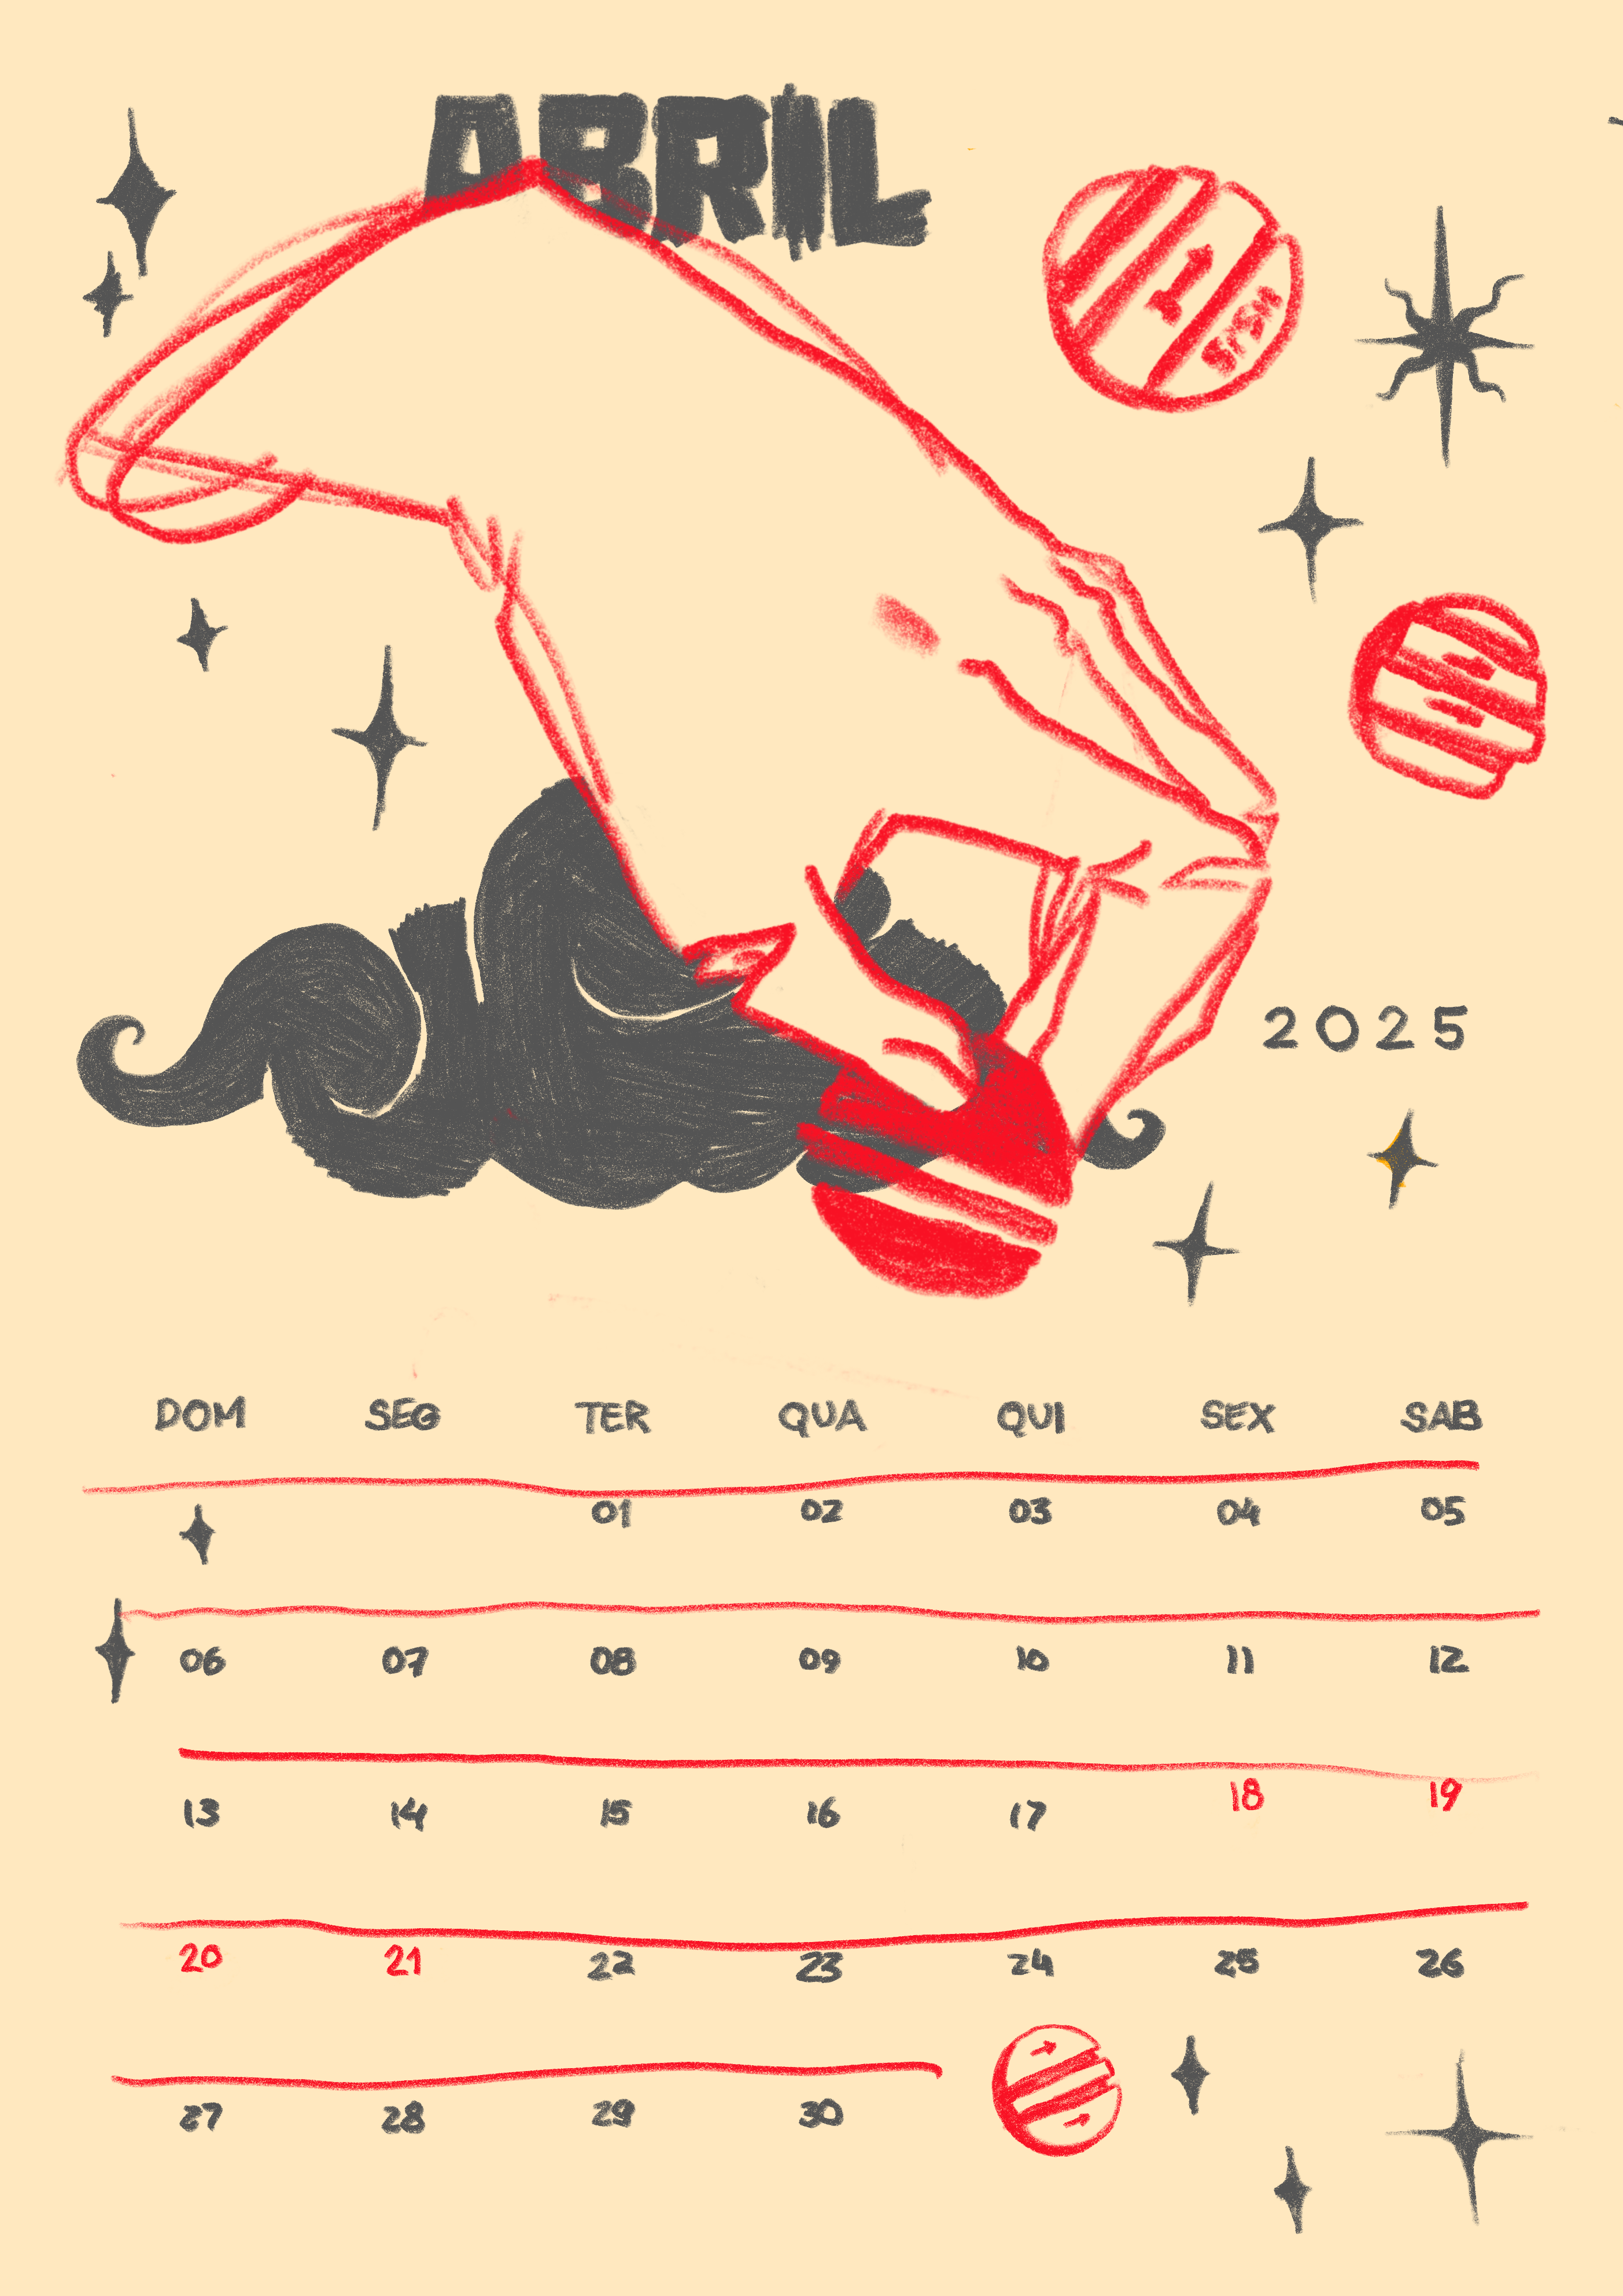 ABRIL
1
2025
DOM SEG TER QUA QUI SEX SAB
01 02 03 04 05
06 07 08 09 10 11 12
13 14 15 16 17 18 19
20 21 22 23 24 25 26
27 28 29 30